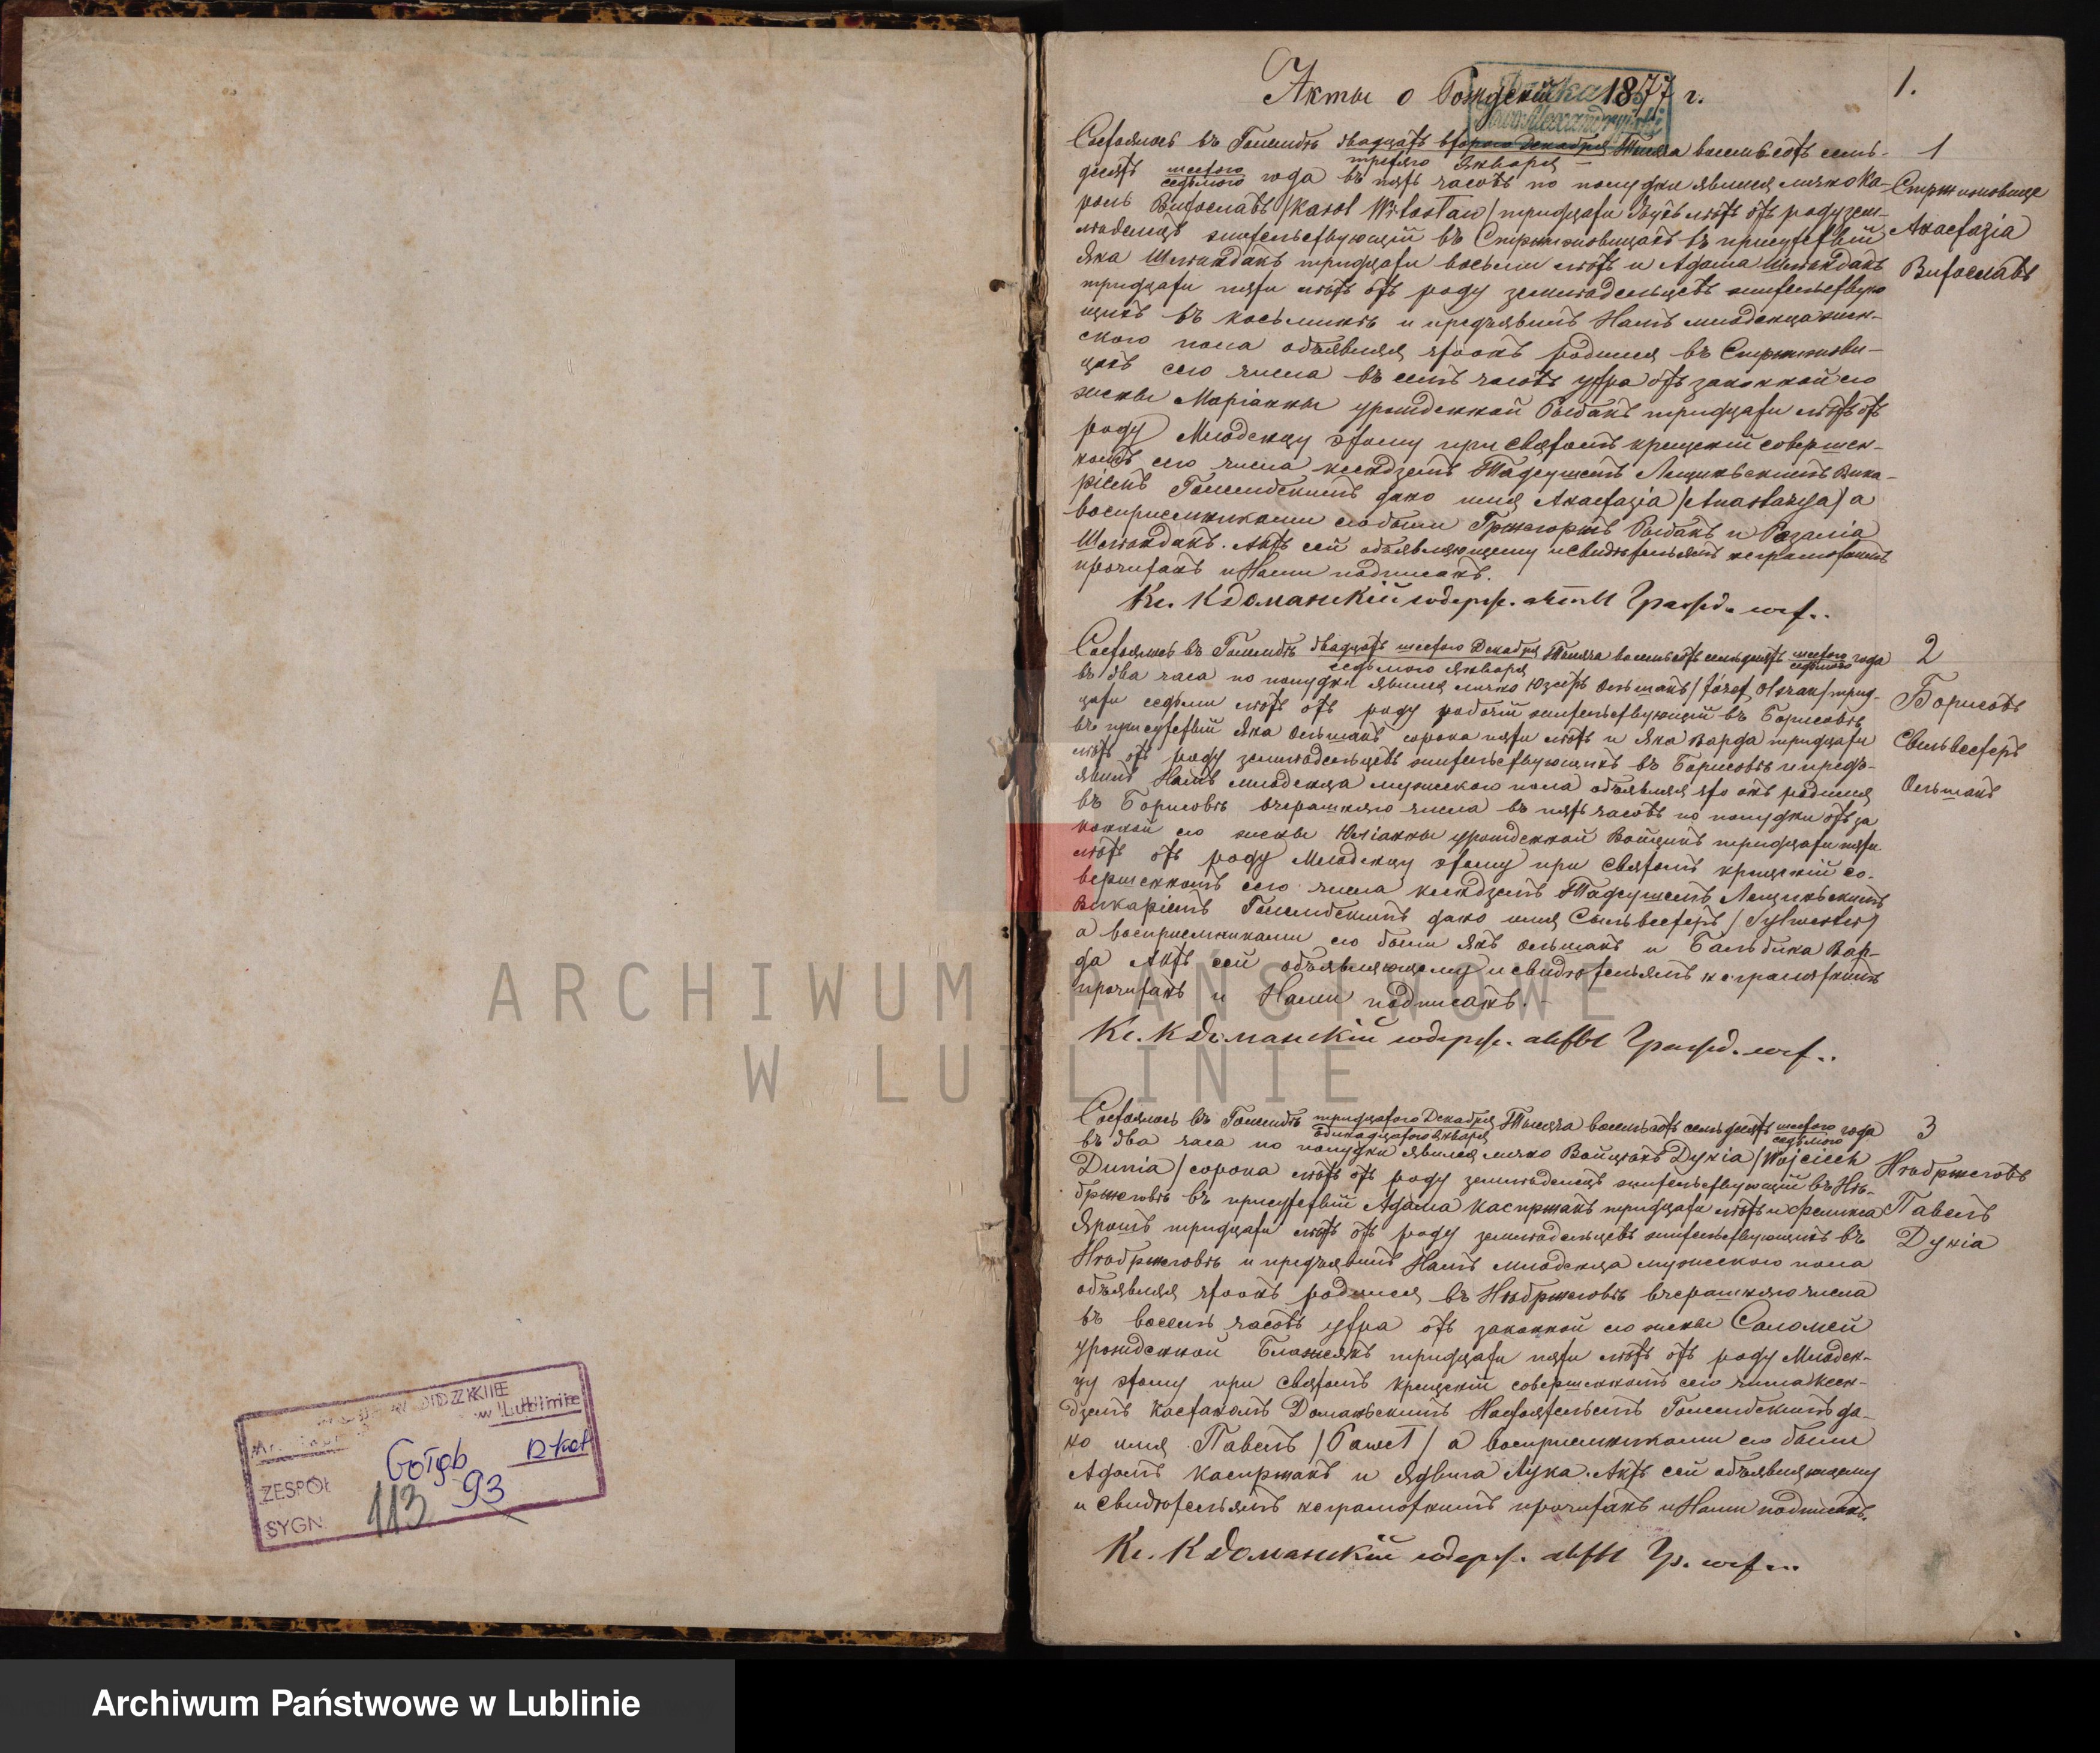 Акты о Рожденіи 1877 г.
1.
Состоялось въ Голембѣ двадцать второго Декабря Тысяча восемьсотъ семь-
третяго Января
1
десятъ шестого года въ пять часовъ по полудни явился лично Ка-
седьмого
роль Витославъ /Karol Witosław/ тридцати двухъ лѣтъ отъ роду зем-
Стржижовице
Анастазія
Витославъ
ледѣлецъ жительствующій въ Стржижовицахъ въ присутствіи
Яна Шлѣндакъ тридцати восьми лѣтъ и Адама Шлѣндакъ
тридцати пяти лѣтъ отъ роду земледѣльцевъ жительствую
щихъ въ и предъявилъ Намъ младенца жен-
ского пола объявляя что онъ родился въ Стржижови-
цахъ сего числа въ семь часовъ утра отъ законной его
жены Маріанны урожденной Рыбакъ тридцати лѣтъ отъ
роду Младенцу этому при Святомъ крещеніи совершен-
номъ сего числа ксендземъ Тадеушемъ Лещинскимъ Вика-
ріемъ Голембскимъ дано имя Анастазія /Anastazya/ а
воспріемниками его были Гржегоржъ Рыбакъ и Розалія
Шлѣндакъ. Актъ сей объявляющему и свидѣтелямъ неграмотнымъ
прочитанъ и Нами подписанъ.
Кс. К Доманскій содерж. акты Гражд. сост.
Состоялось въ Голембѣ двадцать шестого Декабря Тысяча восемьсотъ семьдесятъ шестого года
седьмого Января седьмого
2
въ два часа по полудни явился лично Юзефъ Ольшакъ /Józef Olszak/ трид-
цати седьми лѣтъ отъ роду рабочій жительствующій въ Борисовѣ
Борисовъ
Сыльвестеръ
Ольшакъ
въ присутствіи Яна Ольшакъ сорока пяти лѣтъ и Яна Варда тридцати
лѣтъ отъ роду земледѣльцевъ жительствующихъ въ Борисовѣ и предъ-
явилъ Намъ младенца мужеского пола объявляя что онъ родился
въ Борисовѣ вчерашняго числа въ пять часовъ по полудни отъ за
конной его жены Юліанны урожденной Войцикъ тридцати пяти
лѣтъ отъ роду Младенцу этому при Святомъ крещеніи со-
вершенномъ сего числа ксендземъ Тадеушемъ Лещинскимъ
Викаріемъ Голембскимъ дано имя Сыльвестеръ /Sylwester/
а воспріемниками его были Янъ Ольшакъ и Бальбина Вар-
да Актъ сей объявляющему и свидѣтелямъ неграмотнымъ
прочитанъ и Нами подписанъ.
Кс. К Доманскій содерж. акты Гражд. сост.
Состоялось въ Голембѣ тридцатого Декабря Тысяча восемьсотъ семьдесятъ шестого года
одинадцатого Января седьмого
3
въ два часа по полудни явился лично Войцѣхъ Дуніа /Wojciech
Dunia/ сорока лѣтъ отъ роду земледѣлецъ жительствующій въ Нѣ-
Нѣбржеговъ
Павелъ
Дуніа
бржеговѣ въ присутствіи Адама Каспржакъ тридцати лѣтъ и Феликса
Ярошъ тридцати лѣтъ отъ роду земледѣльцевъ жительствующихъ въ
Нѣбржеговѣ и предъявилъ Намъ младенца мужеского пола
объявляя что онъ родился въ Нѣбржеговѣ вчерашняго числа
въ восемь часовъ утра отъ законной его жены Саломеи
урожденной Блажеякъ тридцати пяти лѣтъ отъ роду Младен-
цу этому при Святомъ крещеніи совершенномъ сего числа ксен-
дземъ Каетаномъ Доманьскимъ Настоятелемъ Голембскимъ да-
но имя Павелъ /Paweł/ а воспріемниками его были
Адамъ Каспржакъ и Ядвига Лука. Актъ сей объявляющему
и свидѣтелямъ неграмотнымъ прочитанъ и Нами подписанъ.
Кс. К Доманскій содерж. акты Гр. сост.
w Lublinie
ZESPÓŁ Gołąb
SYGN. 113 93
ARCHIWUM PAŃSTWOWE
W LUBLINIE
Archiwum Państwowe w Lublinie